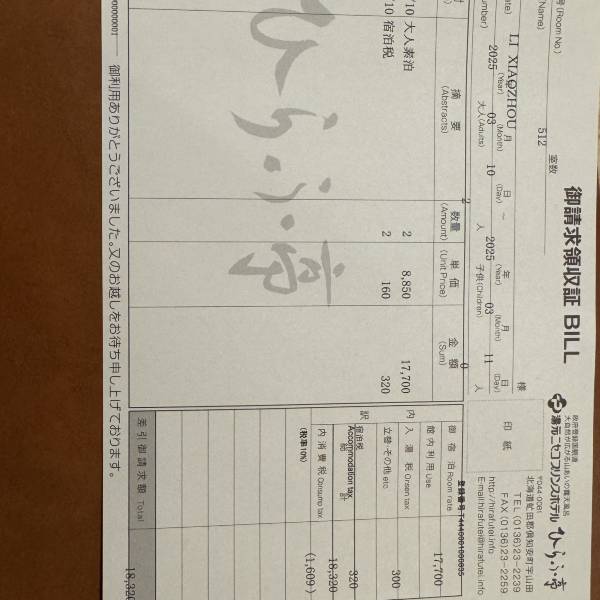 御請求領収証 BILL
号 (Room No.) 512 室数
(Name) LI XIAOZHOU 様
2025 年 (Year) 03 月 (Month) 10 日 (Day) ～ 2025 年 (Year) 03 月 (Month) 11 日 (Day)
大人(Adults) 2 人 子供(Children) 0 人
印紙
政府登録国際旅
大自然が広がる山あいの露天風呂
湯元ニセコプリンスホテル ひらふ亭
〒044-0081
北海道虻田郡倶知安町字山田
TEL (0136)23-2239
FAX (0136)23-2259
http://hirafutei.info
E-mail:hirafutei@hirafutei.info
摘要 (Abstracts) 数量 (Amount) 単価 (Unit Price) 金額 (Sum)
/10 大人素泊 2 8,850 17,700
/10 宿泊税 2 160 320
ひらふ亭
内訳
御宿泊 Room rate 17,700
館内利用 Use
入湯税 Onsen tax 300
立替・その他 etc
宿泊税 Accommodation tax 320
計 18,320
内消費税 Consump tax (税率10%) (1,609)
差引御請求額 Total 18,320
御利用ありがとうございました。又のお越しをお待ち申し上げております。